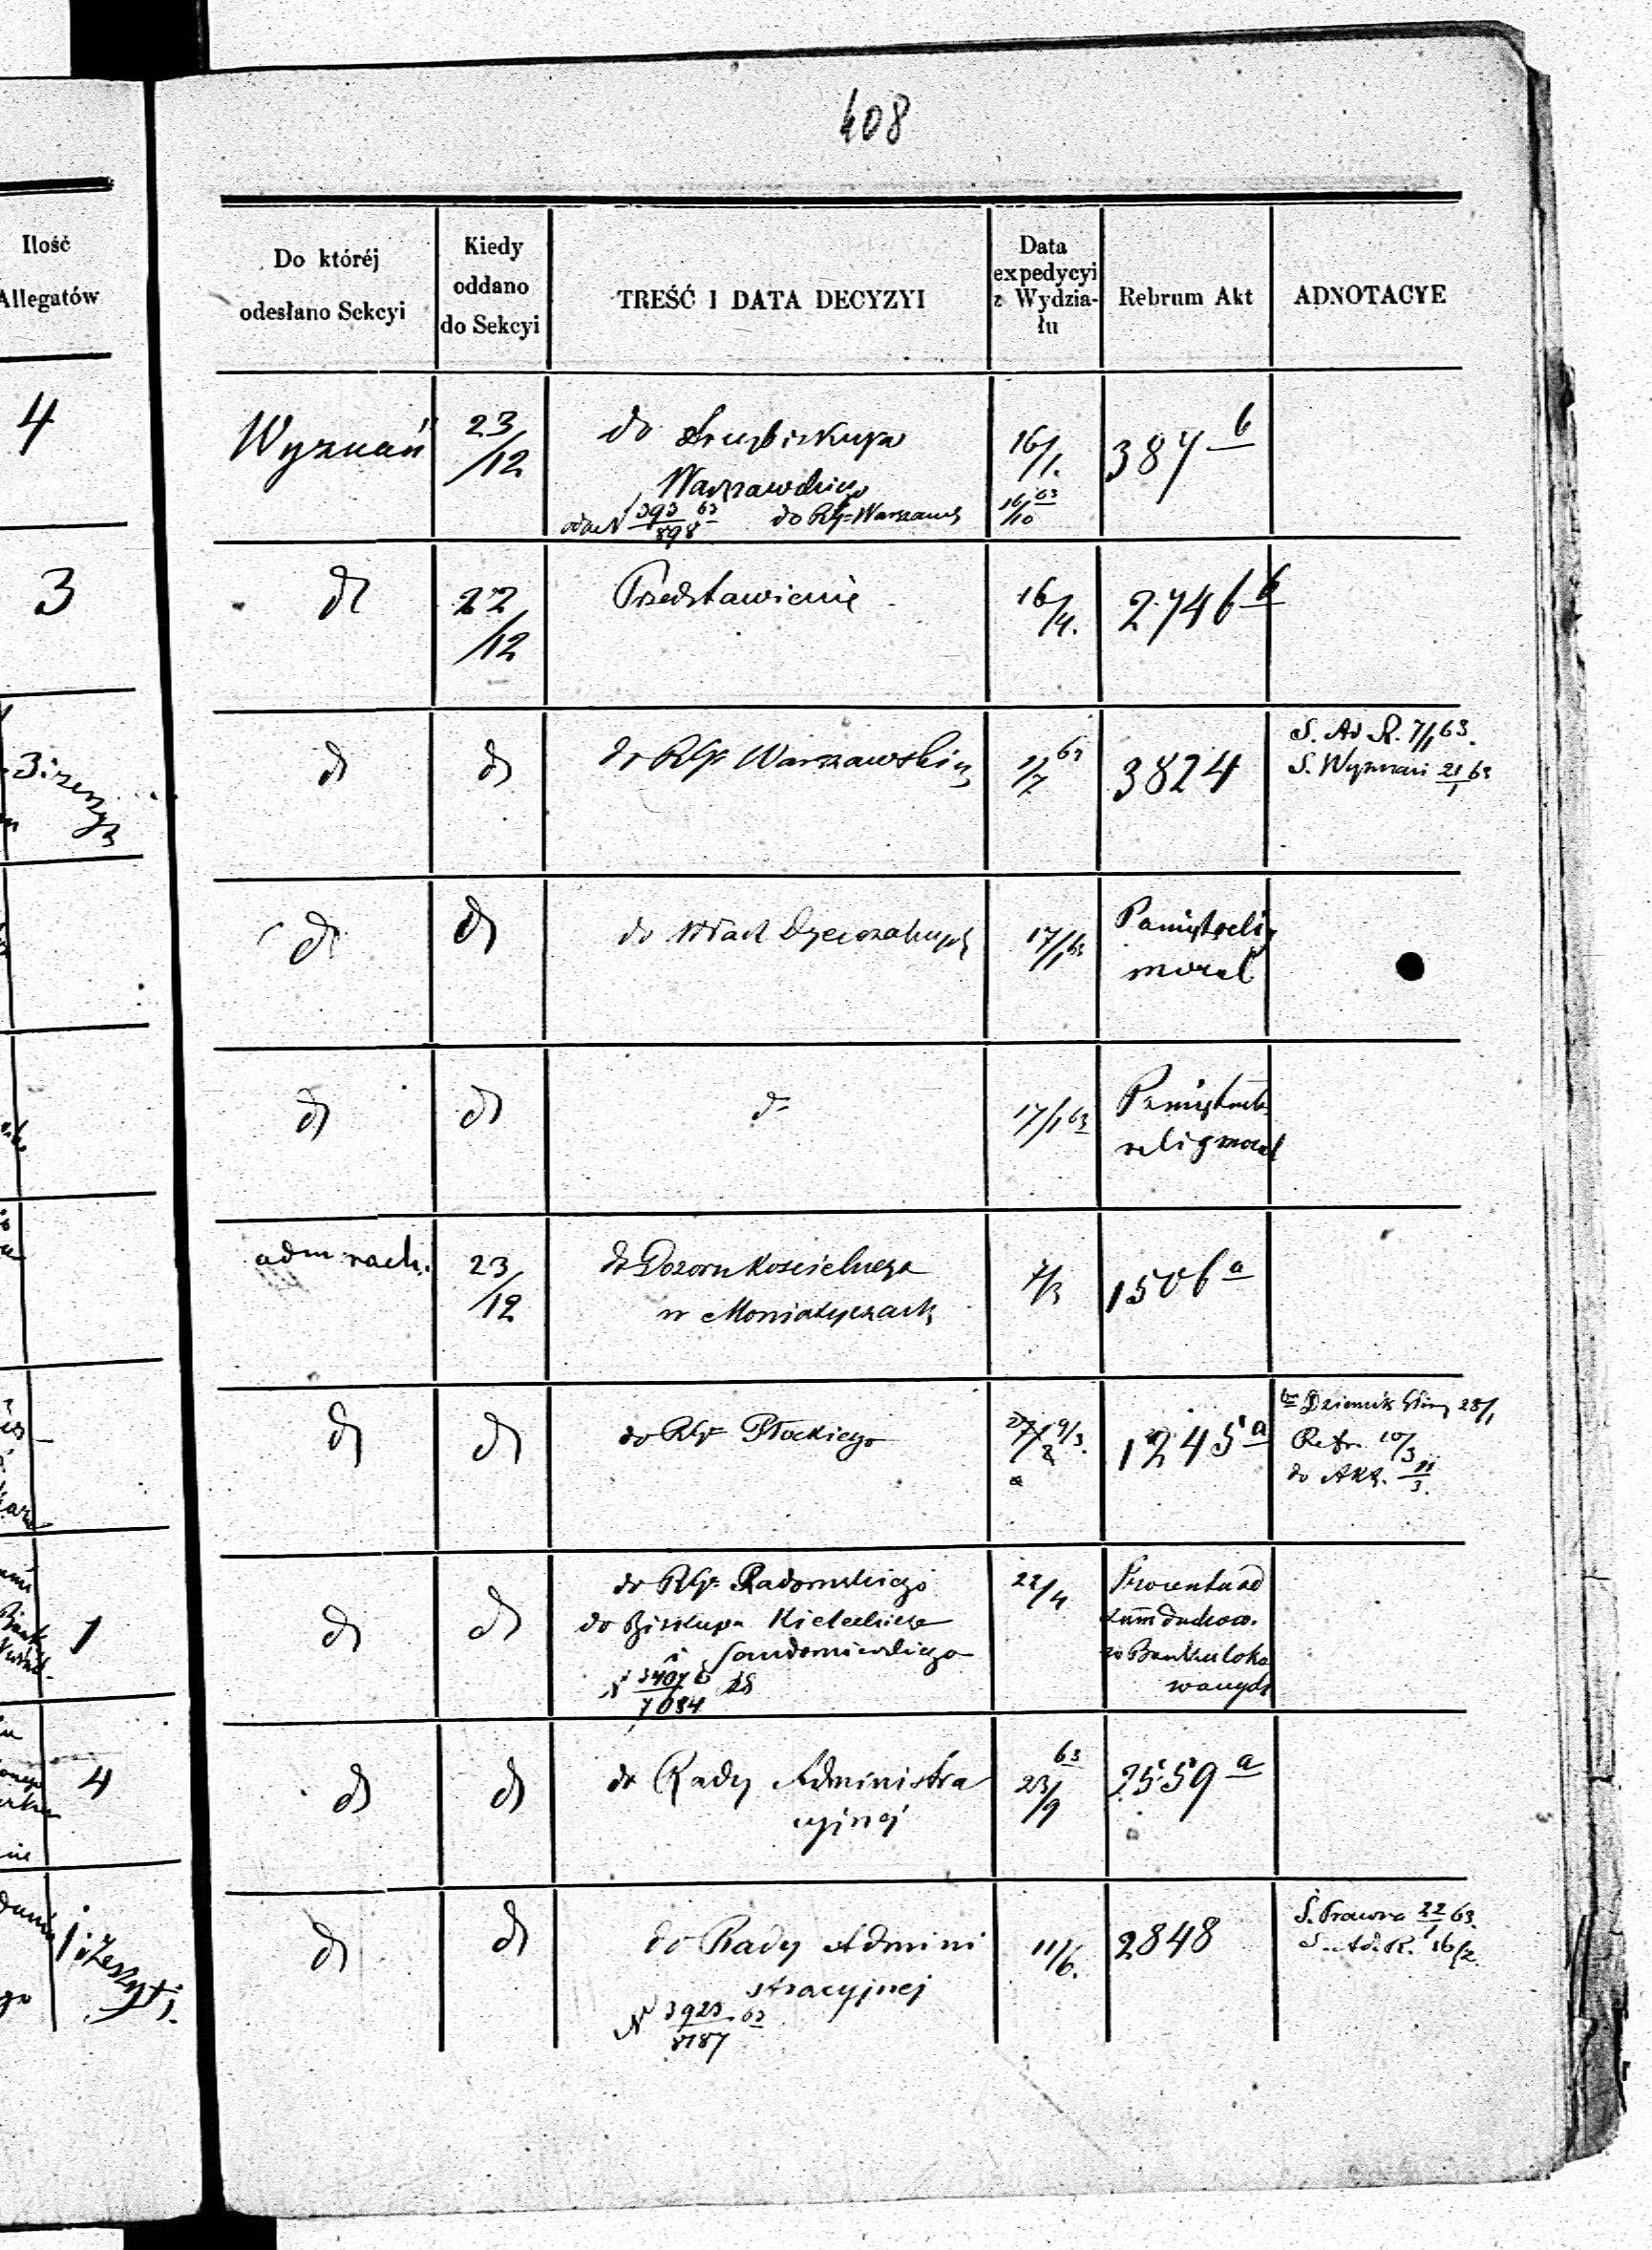 408
Ilość
Allegatów
Do któréj
odesłano Sekcyi
Kiedy
oddano
do Sekcyi
TREŚĆ I DATA DECYZYI
Data
expedycyi
z Wydzia-
łu
Rebrum Akt
ADNOTACYE
4
Wyznań
23/12
do Arcybiskupa
Warszawskiego
393/898 63 do RG= Warszaws
16/1.
16/10 63
387 b
3
dt
22/12
Przedstawienie
16/4.
2746 b
3 i zeszyt
dt
dt
do RGu Warszawskiego
1/7 63
3824
S. Ad R. 7/1 63.
S. Wyznań 21/1 63
dt
dt
do Władz Dyecezalnych
17/1 63
Pamięt relig
moral
dt
dt
dt
17/1 63
Pamiętnik
relig moral
adm rach.
23/12
do Dozoru Kościelnego
w Moniatyczach
7/3
1506 a
dt
dt
do RGu Płockiego
9/3.
1245 a
Dziennik Główy 28/1
Refer. 10/3
do Akt. 11/3.
1
dt
dt
do RGu Radomskiego
do Biskupa Kieleckiego
i Sandomierskiego
N 3407/7084
22/4
Procenta od
summ duchow.
w Banku loko
wanych
4
dt
dt
do Rady Administra
cyjnej
63
23/9
2559 a
1 i Zeszyt
dt
dt
do Rady Admini
stracyjnej
N 3923/8787 63
11/6.
2848
S. Prawna 22/1 63.
S. Ad. R. 16/2.